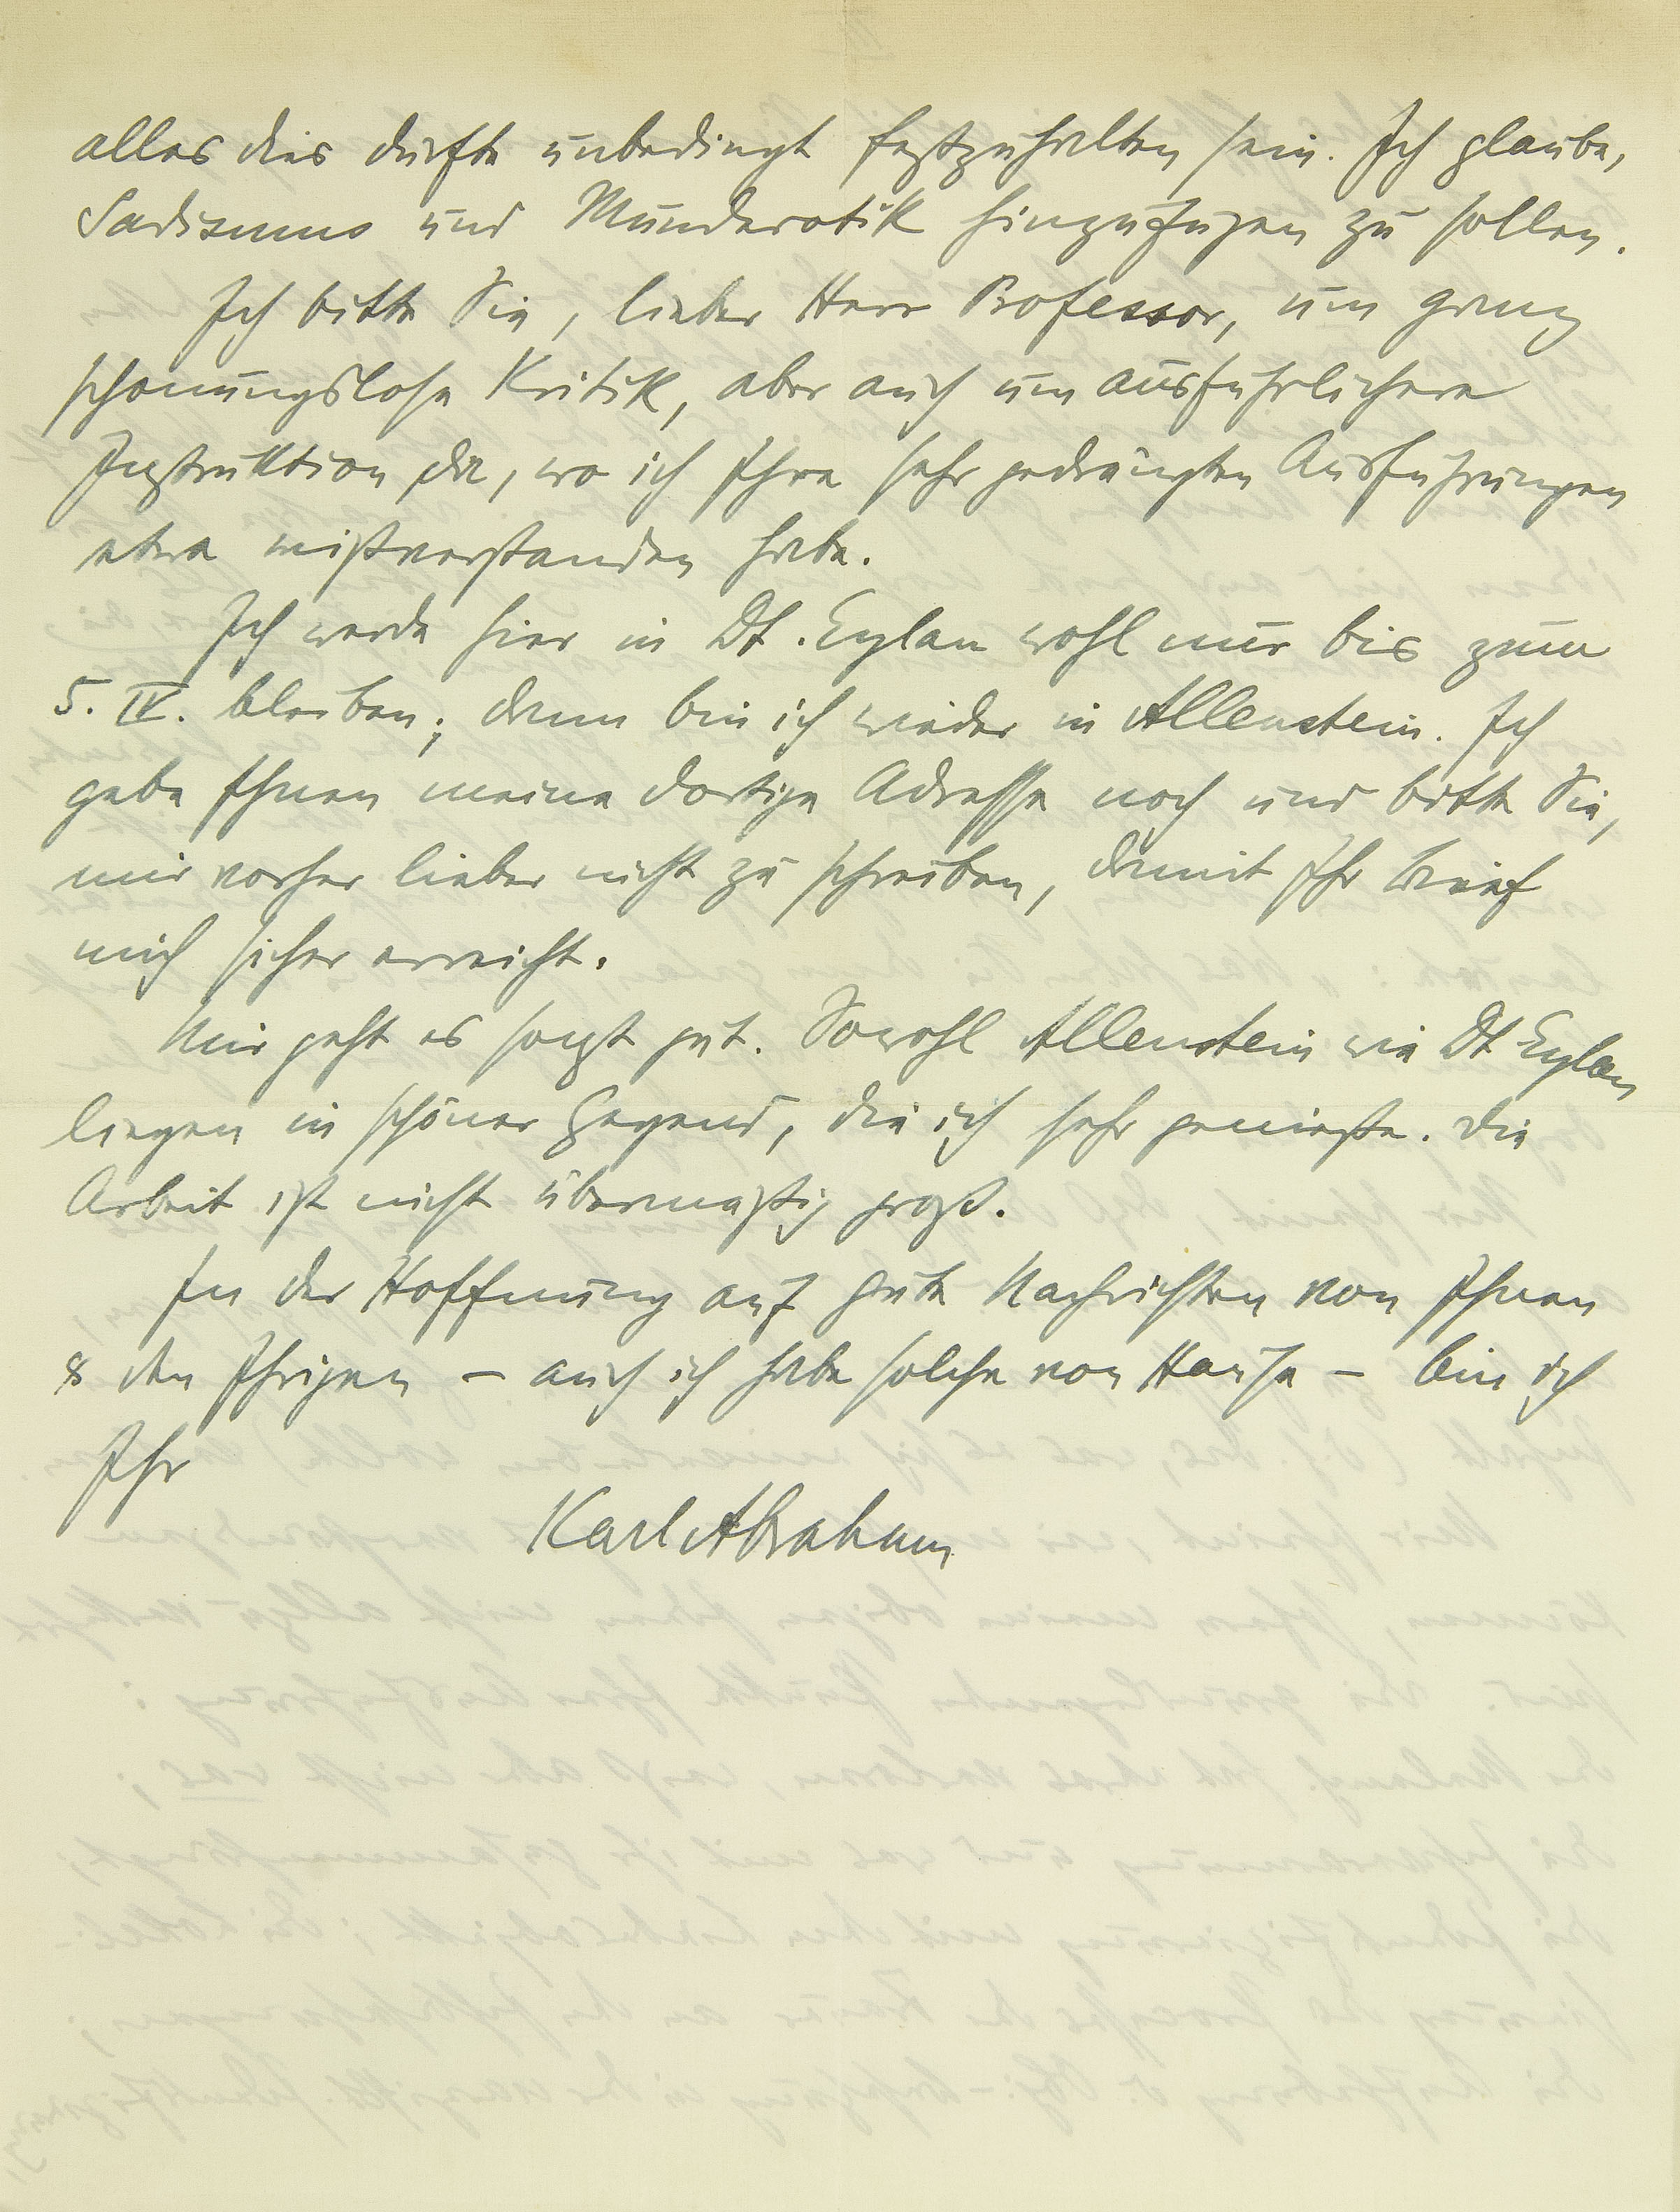 alles dies dürfte unbedingt festzuhalten sein. Ich glaube,
Sadismus und Munderotik hinzufügen zu sollen.
Ich bitte Sie, lieber Herr Professor, um ganz
schonungslose Kritik, aber auch um ausführlichere
Instruktion da, wo ich Ihre sehr gedrängten Ausführungen
etwa mißverstanden habe.
Ich werde hier in Dt. Eylau wohl nur bis zum
5. IV. bleiben; dann bin ich wieder in Allenstein. Ich
gebe Ihnen meine dortige Adresse noch und bitte Sie,
mir vorher lieber nicht zu schreiben, damit Ihr Brief
mich sicher erreicht.
Mir geht es sonst gut. Sowohl Allenstein wie Dt Eylau
liegen in schöner Gegend, die ich sehr genieße. Die
Arbeit ist nicht übermäßig groß.
In der Hoffnung auf gute Nachrichten von Ihnen
& den Ihrigen – auch ich habe solche von Hause – bin ich
Ihr
Karl Abraham